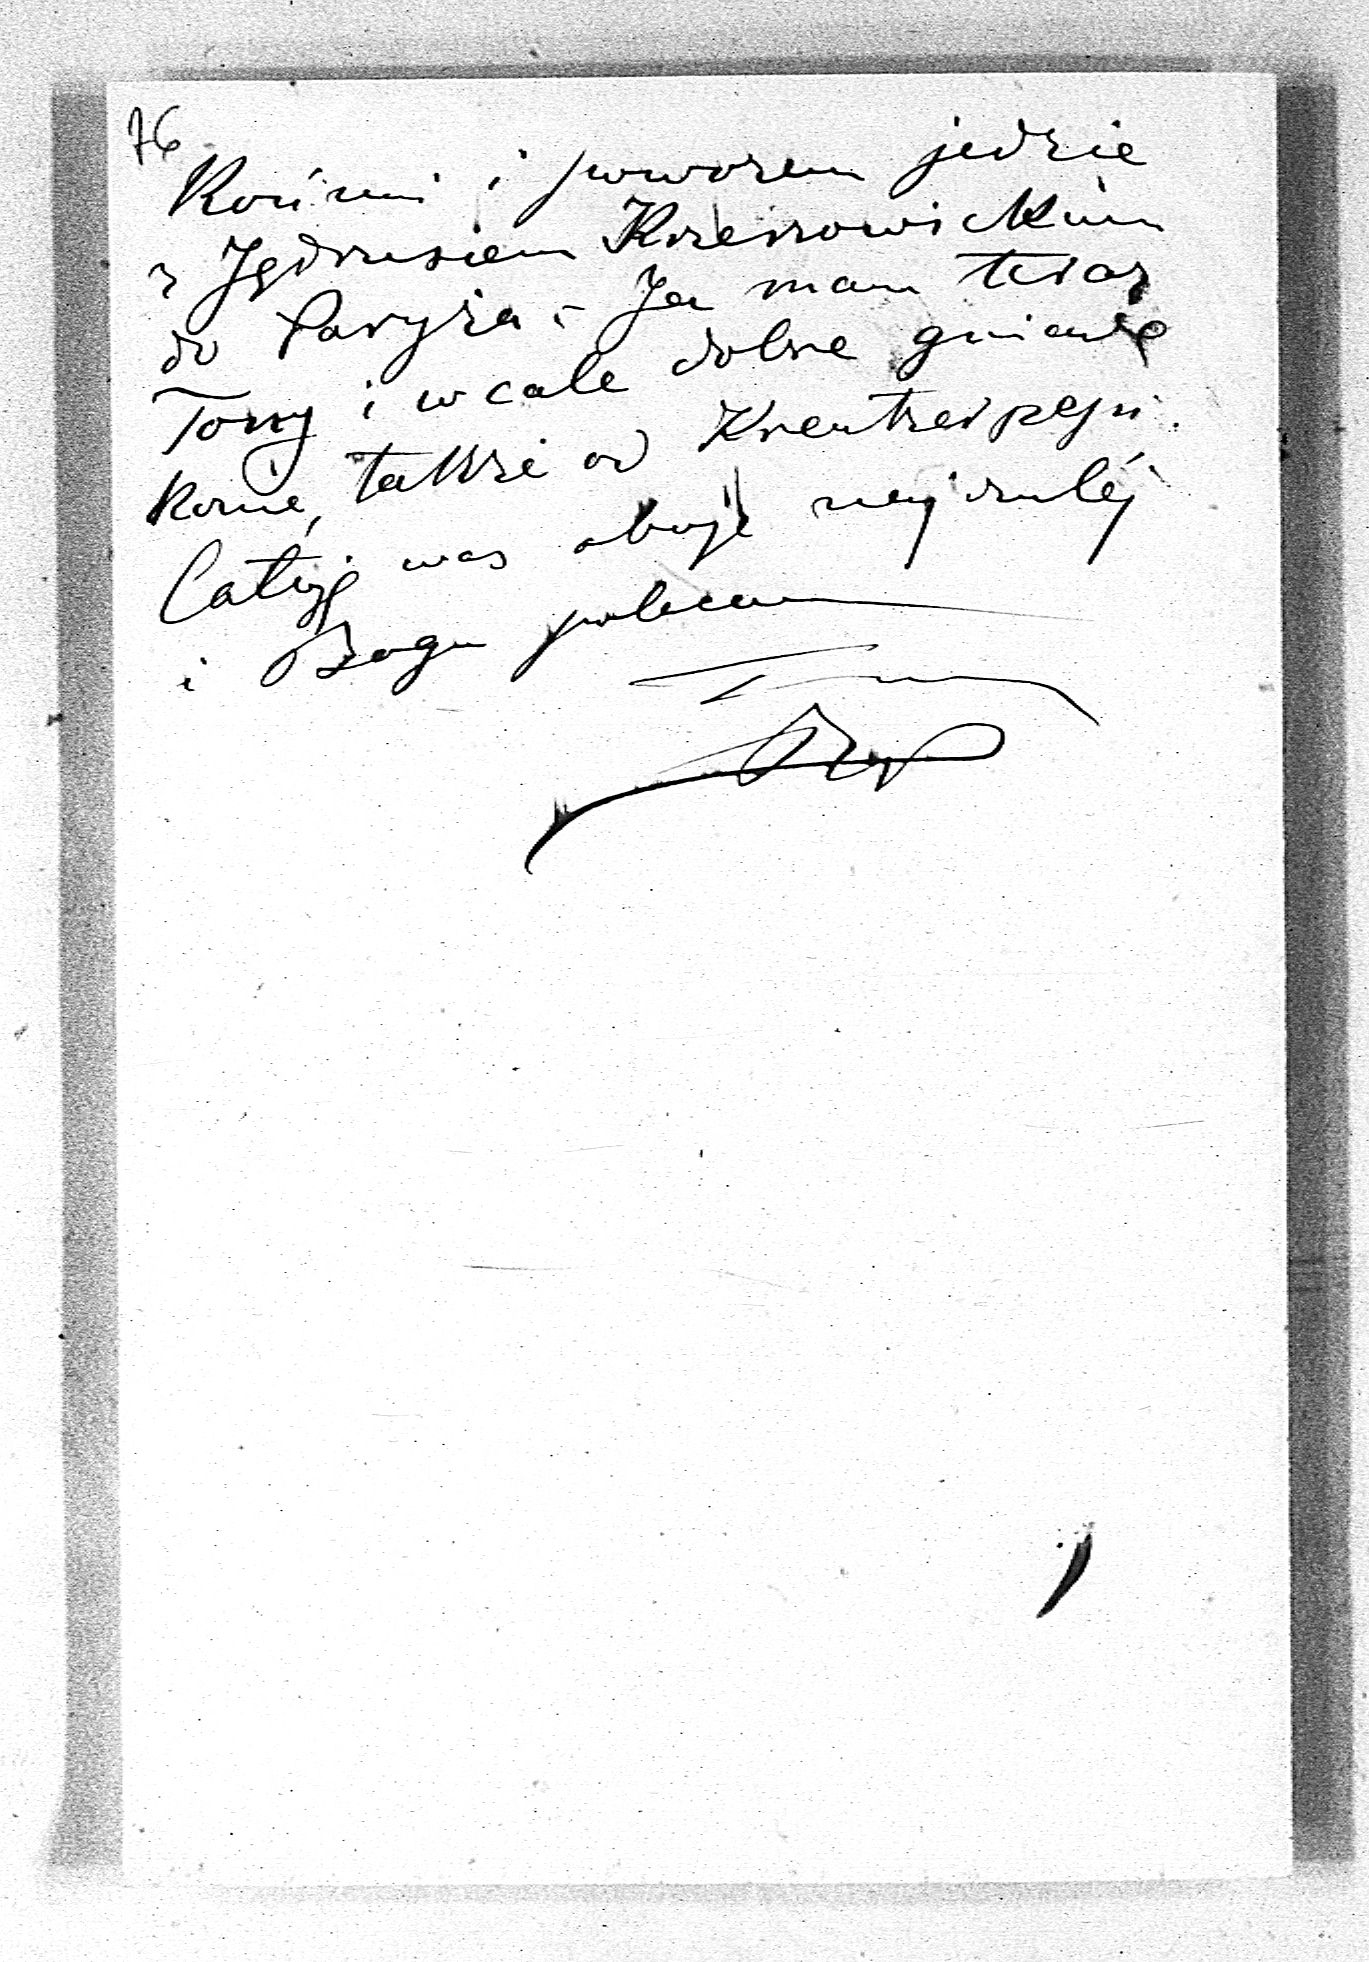 76
Końmi i powozem jedzie
z Jędrusiem Krzeszowickim
do Paryża. – Ja mam teraz
Tony i wcale dobre gniade
konie, także od
Całuję was oboje najczulej
i Bogu polecam